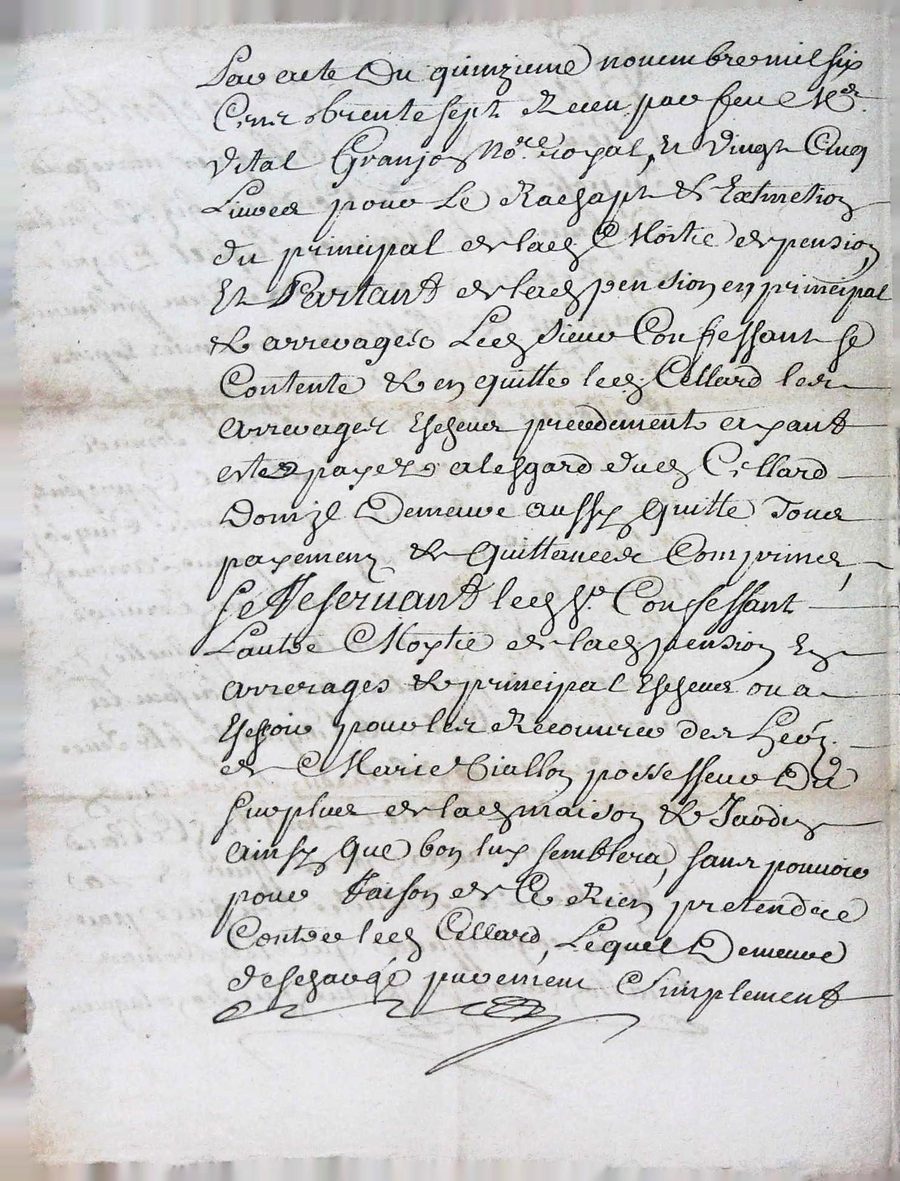 Par acte du quinzieme novembre mil six
Cens trente sept Receu par feu Me
Vital Granjon Nore. royal, et vingt Cinq
Livres pour Le Rachapt & Extinction
du principal de lad. Moitié de pension,
Et Partant de lad. pension en principal
& arrerages Led. sieur Confessant se
Contente & en quitte led. Cellard les
arrerages Escheus precedement ayant
estes payez a lesgard dud. Cellard
Domzl Demeure aussy quitte Tous
payemens & quittances Comprinses,
se Reservant led. Sr. Confessant
Lautre Moytié de lad. pension En
arrerages & principal Escheus ou a
Eschoir pour les Recouvrer des
de Marie Viallon possesseur du
surplus de lad. maison & Jardin
ainsy que bon luy semblera, sans pouvoir
pour Raison de Ce Rien pretendre
Contre led. Cellard, Lequel Demeure
deschargé purement Simplement